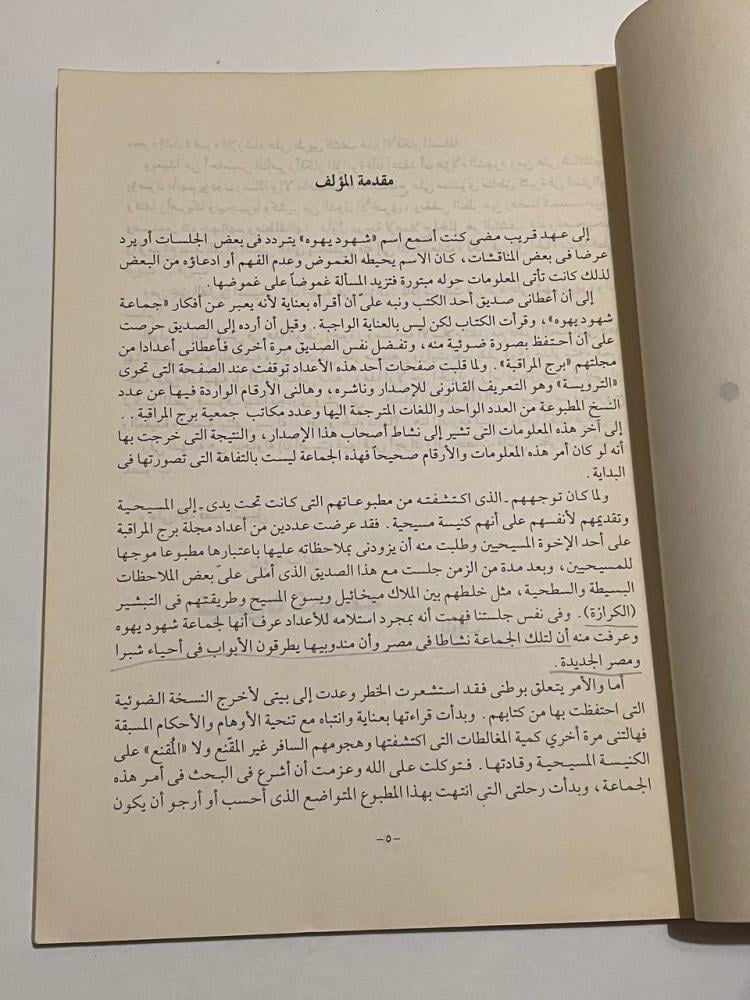 مقدمة المؤلف
إلى عهد قريب مضى كنت أسمع اسم «شهود يهوه» يتردد فى بعض الجلسات أو يرد
عرضا فى بعض المناقشات، كان الاسم يحيطه الغموض وعدم الفهم أو ادعاؤه من البعض
لذلك كانت تأتى المعلومات حوله مبتورة فتزيد المسألة غموضاً على غموضها.
إلى أن أعطانى صديق أحد الكتب ونبه علىّ أن أقرأه بعناية لأنه يعبر عن أفكار «جماعة
شهود يهوه»، وقرأت الكتاب لكن ليس بالعناية الواجبة. وقبل أن أرده إلى الصديق حرصت
على أن أحتفظ بصورة ضوئية منه، وتفضل نفس الصديق مرة أخرى فأعطانى أعدادا من
مجلتهم «برج المراقبة». ولما قلبت صفحات أحد هذه الأعداد توقفت عند الصفحة التى تحوى
«الترويسة» وهو التعريف القانونى للإصدار وناشره، وهالنى الأرقام الواردة فيها عن عدد
النسخ المطبوعة من العدد الواحد واللغات المترجمة اليها وعدد مكاتب جمعية برج المراقبة ..
إلى آخر هذه المعلومات التى تشير إلى نشاط أصحاب هذا الإصدار، والنتيجة التى خرجت بها
أنه لو كان أمر هذه المعلومات والأرقام صحيحاً فهذه الجماعة ليست بالتفاهة التى تصورتها فى
البداية.
ولما كان توجههم - الذى اكتشفته من مطبوعاتهم التى كانت تحت يدى - إلى المسيحية
وتقديمهم لأنفسهم على أنهم كنيسة مسيحية. فقد عرضت عددين من أعداد مجلة برج المراقبة
على أحد الإخوة المسيحيين وطلبت منه أن يزودنى بملاحظاته عليها باعتبارها مطبوعا موجها
للمسيحيين، وبعد مدة من الزمن جلست مع هذا الصديق الذى أملى علىّ بعض الملاحظات
البسيطة والسطحية، مثل خلطهم بين الملاك ميخائيل ويسوع المسيح وطريقتهم فى التبشير
(الكرازة). وفى نفس جلستنا فهمت أنه بمجرد استلامه للأعداد عرف أنها لجماعة شهود يهوه
وعرفت منه أن لتلك الجماعة نشاطا فى مصر وأن مندوبيها يطرقون الأبواب فى أحياء شبرا
ومصر الجديدة.
أما والأمر يتعلق بوطنى فقد استشعرت الخطر وعدت إلى بيتى لأخرج النسخة الضوئية
التى احتفظت بها من كتابهم. وبدأت قراءتها بعناية وانتباه مع تنحية الأوهام والأحكام المسبقة
فهالتنى مرة أخري كمية المغالطات التى اكتشفتها وهجومهم السافر غير المقنع ولا «المُقنع» على
الكنيسة المسيحية وقادتها. فتوكلت على الله وعزمت أن أشرع فى البحث فى أمر هذه
الجماعة، وبدأت رحلتى التى انتهت بهذا المطبوع المتواضع الذى أحسب أو أرجو أن يكون
-٥-